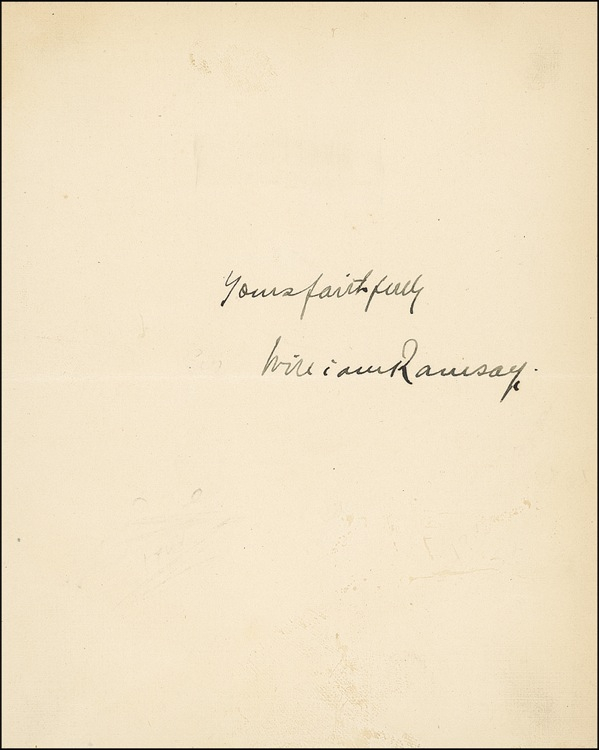 Yours faithfully
William Ramsay.